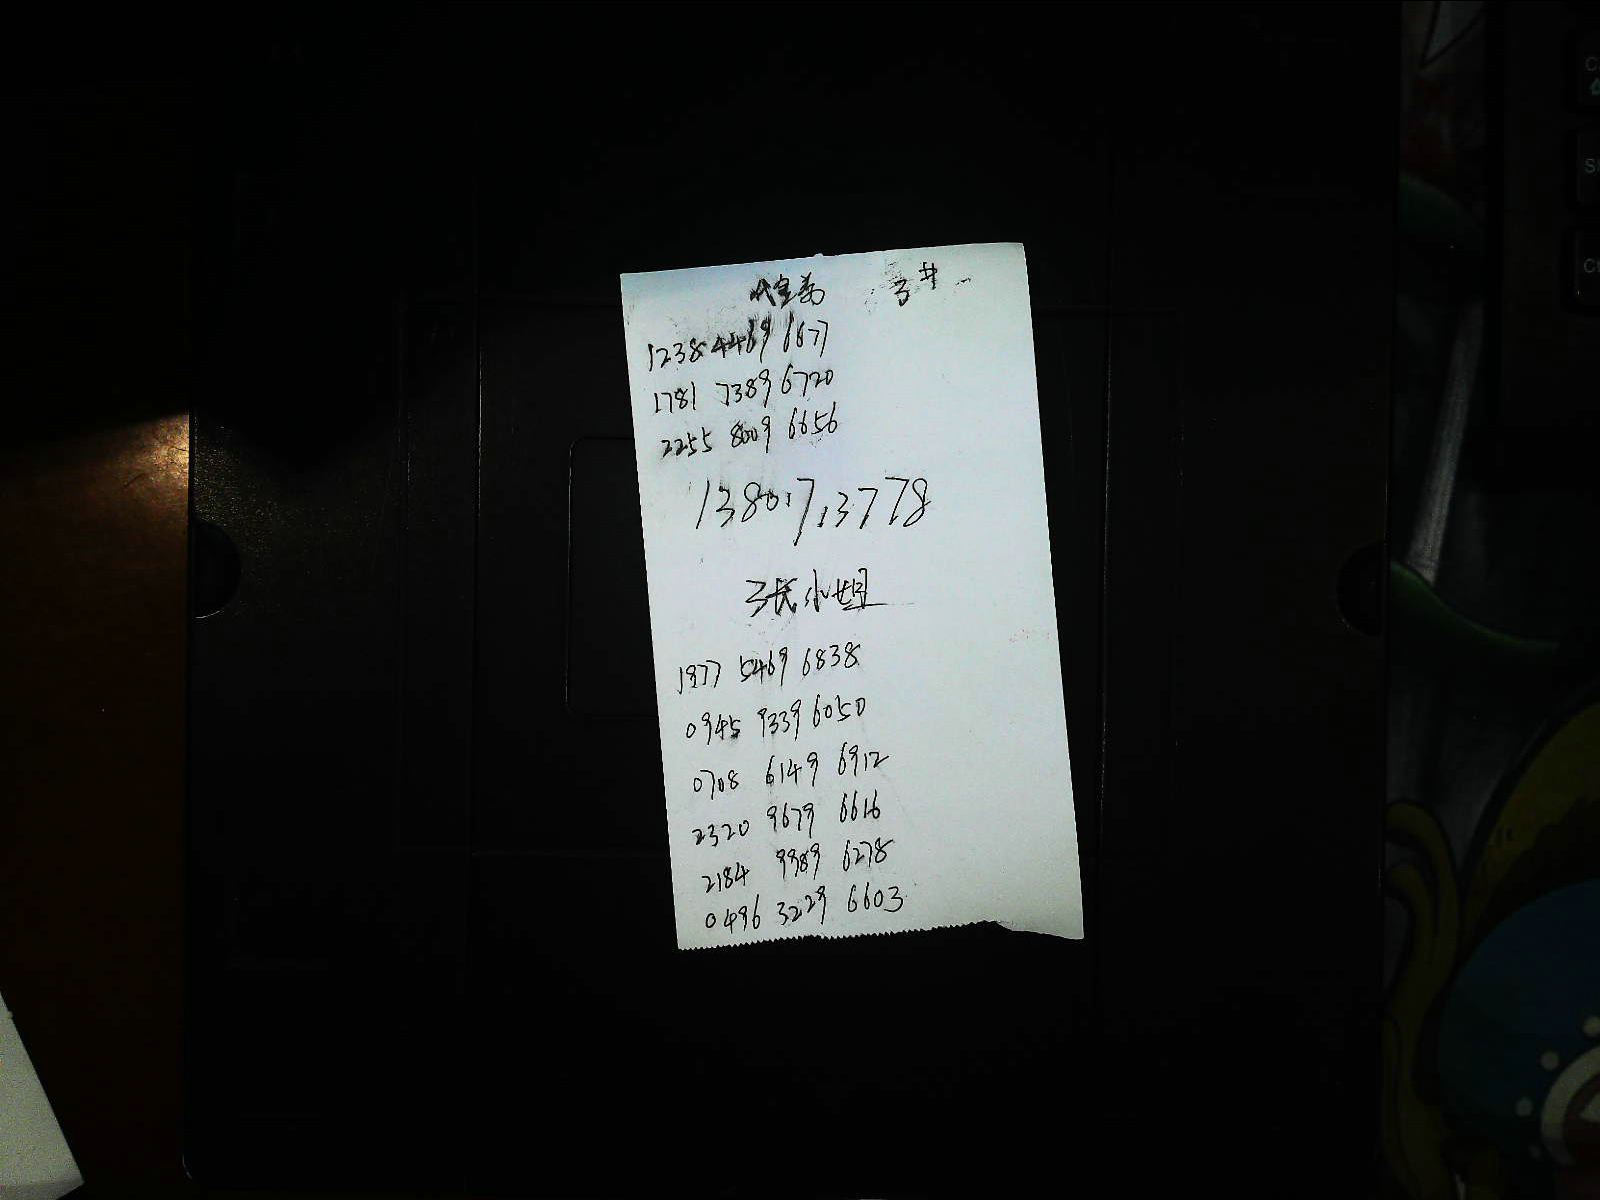 3#
1238 4469 6677
1781 7389 6720
2255 8009 6656
张小姐
1977 5469 6838
0945 9339 6050
0708 6149 6912
2320 9679 6616
2184 9989 6278
0496 3229 6603